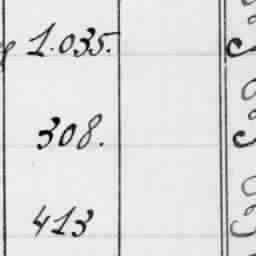 1.035.
308.
413